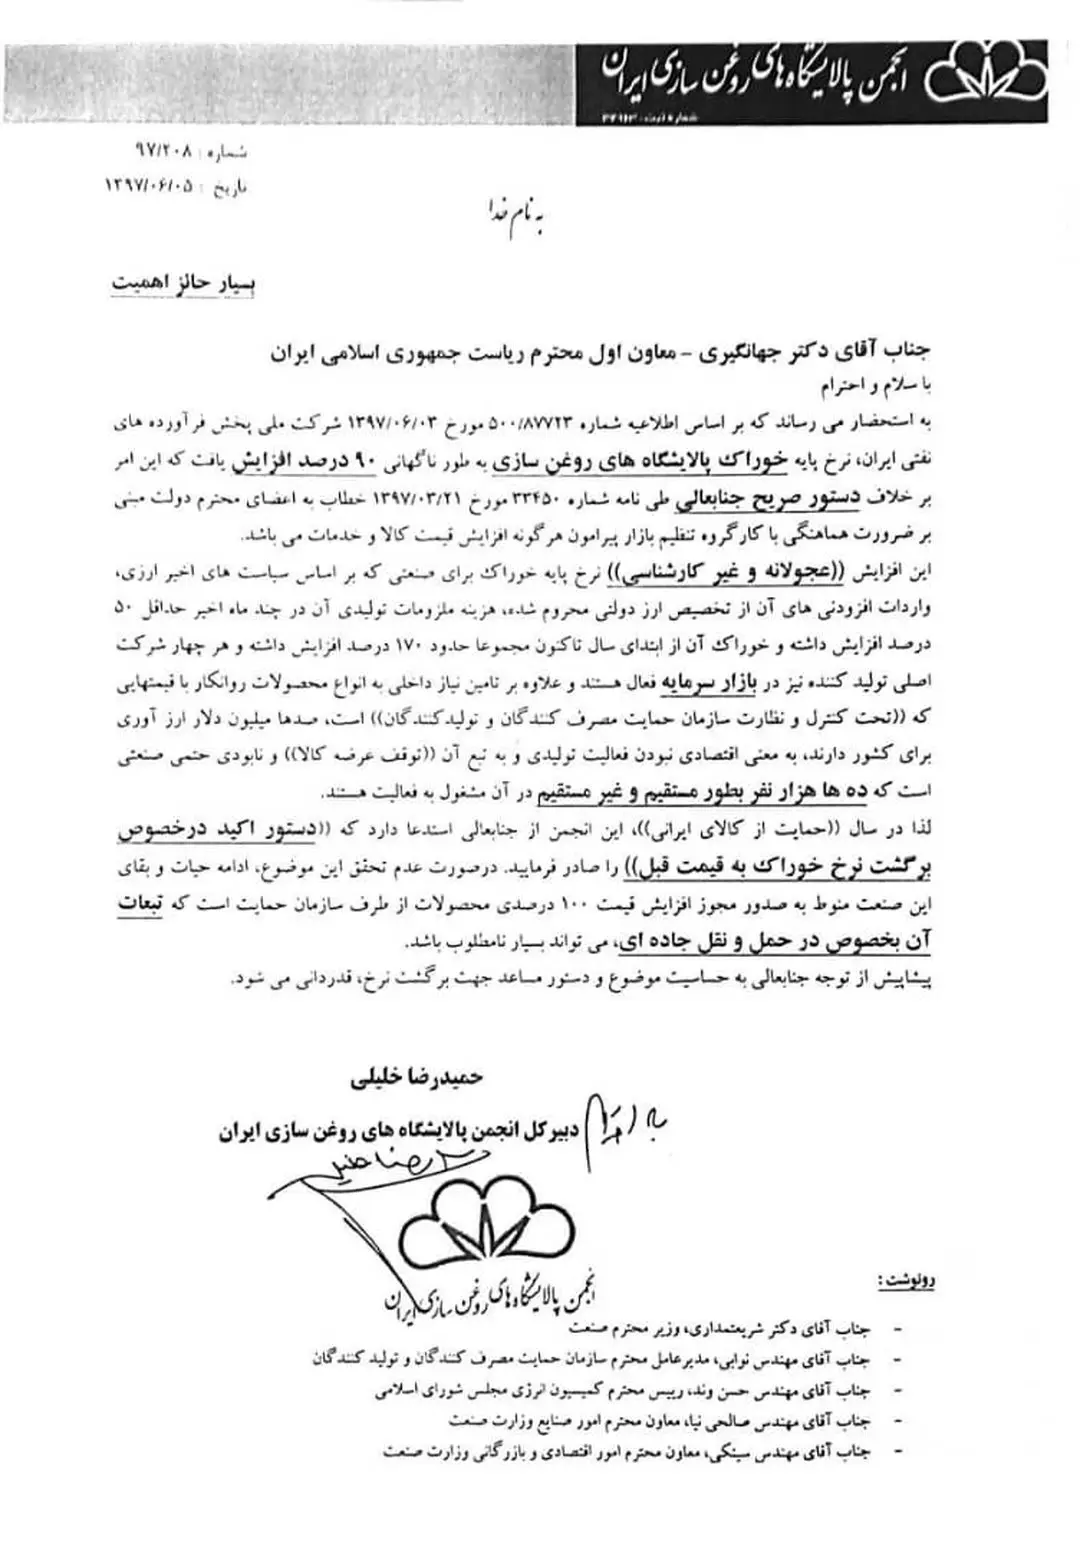 انجمن پالایشگاه های روغن سازی ایران
شماره ثبت:
شماره : ۹۷/۲۰۸
تاریخ : ۱۳۹۷/۰۶/۰۵
به نام خدا
بسیار حائز اهمیت
جناب آقای دکتر جهانگیری – معاون اول محترم ریاست جمهوری اسلامی ایران
با سلام و احترام
به استحضار می رساند که بر اساس اطلاعیه شماره ۵۰۰/۸۷۷۲۳ مورخ ۱۳۹۷/۰۶/۰۳ شرکت ملی پخش فرآورده های
نفتی ایران، نرخ پایه خوراک پالایشگاه های روغن سازی به طور ناگهانی ۹۰ درصد افزایش یافت که این امر
بر خلاف دستور صریح جنابعالی طی نامه شماره ۳۳۴۵۰ مورخ ۱۳۹۷/۰۳/۲۱ خطاب به اعضای محترم دولت مبنی
بر ضرورت هماهنگی با کارگروه تنظیم بازار پیرامون هرگونه افزایش قیمت کالا و خدمات می باشد.
این افزایش ((عجولانه و غیر کارشناسی)) نرخ پایه خوراک برای صنعتی که بر اساس سیاست های اخیر ارزی،
واردات افزودنی های آن از تخصیص ارز دولتی محروم شده، هزینه ملزومات تولیدی آن در چند ماه اخیر حداقل ۵۰
درصد افزایش داشته و خوراک آن از ابتدای سال تاکنون مجموعا حدود ۱۷۰ درصد افزایش داشته و هر چهار شرکت
اصلی تولید کننده نیز در بازار سرمایه فعال هستند و علاوه بر تامین نیاز داخلی به انواع محصولات روانکار با قیمتهایی
که ((تحت کنترل و نظارت سازمان حمایت مصرف کنندگان و تولیدکنندگان)) است، صدها میلیون دلار ارز آوری
برای کشور دارند، به معنی اقتصادی نبودن فعالیت تولیدی و به تبع آن ((توقف عرضه کالا)) و نابودی حتمی صنعتی
است که ده ها هزار نفر بطور مستقیم و غیر مستقیم در آن مشغول به فعالیت هستند.
لذا در سال ((حمایت از کالای ایرانی))، این انجمن از جنابعالی استدعا دارد که ((دستور اکید درخصوص
برگشت نرخ خوراک به قیمت قبل)) را صادر فرمایید. درصورت عدم تحقق این موضوع، ادامه حیات و بقای
این صنعت منوط به صدور مجوز افزایش قیمت ۱۰۰ درصدی محصولات از طرف سازمان حمایت است که تبعات
آن بخصوص در حمل و نقل جاده ای، می تواند بسیار نامطلوب باشد.
پیشاپیش از توجه جنابعالی به حساسیت موضوع و دستور مساعد جهت برگشت نرخ، قدردانی می شود.
حمیدرضا خلیلی
دبیرکل انجمن پالایشگاه های روغن سازی ایران
انجمن پالایشگاه های روغن سازی ایران
رونوشت :
- جناب آقای دکتر شریعتمداری، وزیر محترم صنعت
- جناب آقای مهندس نوابی، مدیرعامل محترم سازمان حمایت مصرف کنندگان و تولید کنندگان
- جناب آقای مهندس حسن وند، رییس محترم کمیسیون انرژی مجلس شورای اسلامی
- جناب آقای مهندس صالحی نیا، معاون محترم امور صنایع وزارت صنعت
- جناب آقای مهندس سینکی، معاون محترم امور اقتصادی و بازرگانی وزارت صنعت